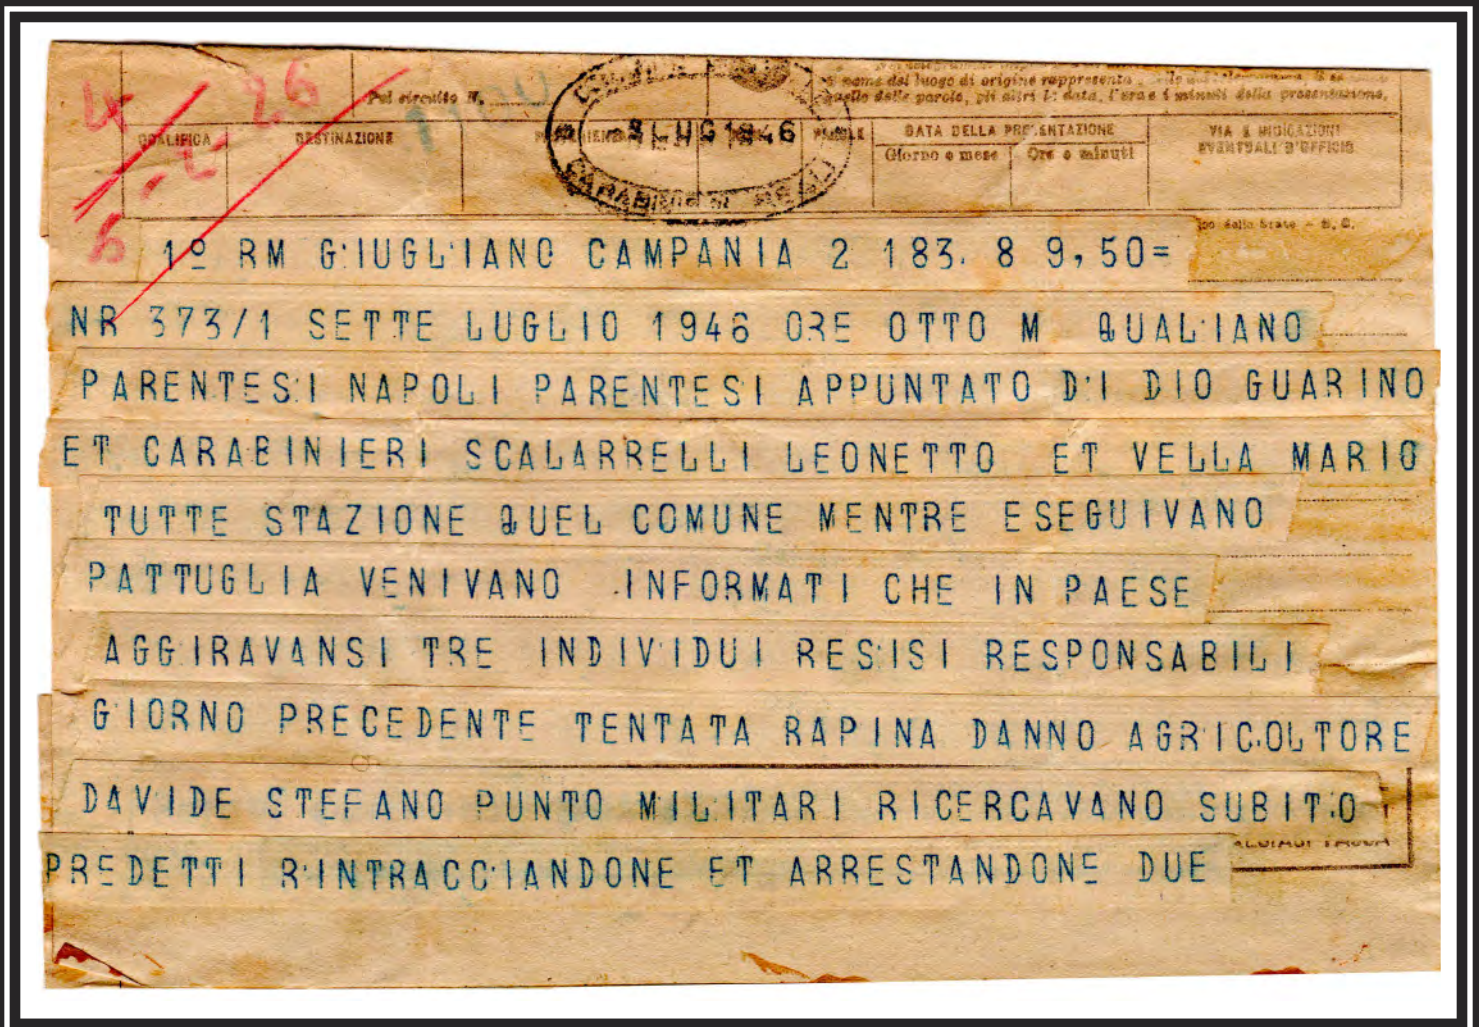 4 26
Pel circuito N.
nome del luogo di origine rappresenta
quello delle parole, gli altri la data, l'ora e i minuti della presentazione.
QUALIFICA DESTINAZIONE PAROLE DATA DELLA PRESENTAZIONE VIA E INDICAZIONI
EVENTUALI D'UFFICIO
Giorno e mese Ore e minuti
LUG 1946
CARABINIERI REALI
dello Stato
1º RM GIUGLIANO CAMPANIA 2 183. 8 9,50=
NR 373/1 SETTE LUGLIO 1946 ORE OTTO M QUALIANO
PARENTESI NAPOLI PARENTESI APPUNTATO DI DIO GUARINO
ET CARABINIERI SCALARRELLI LEONETTO ET VELLA MARIO
TUTTE STAZIONE QUEL COMUNE MENTRE ESEGUIVANO
PATTUGLIA VENIVANO INFORMATI CHE IN PAESE
AGGIRAVANSI TRE INDIVIDUI RESISI RESPONSABILI
GIORNO PRECEDENTE TENTATA RAPINA DANNO AGRICOLTORE
DAVIDE STEFANO PUNTO MILITARI RICERCAVANO SUBITO
PREDETTI RINTRACCIANDONE ET ARRESTANDONE DUE